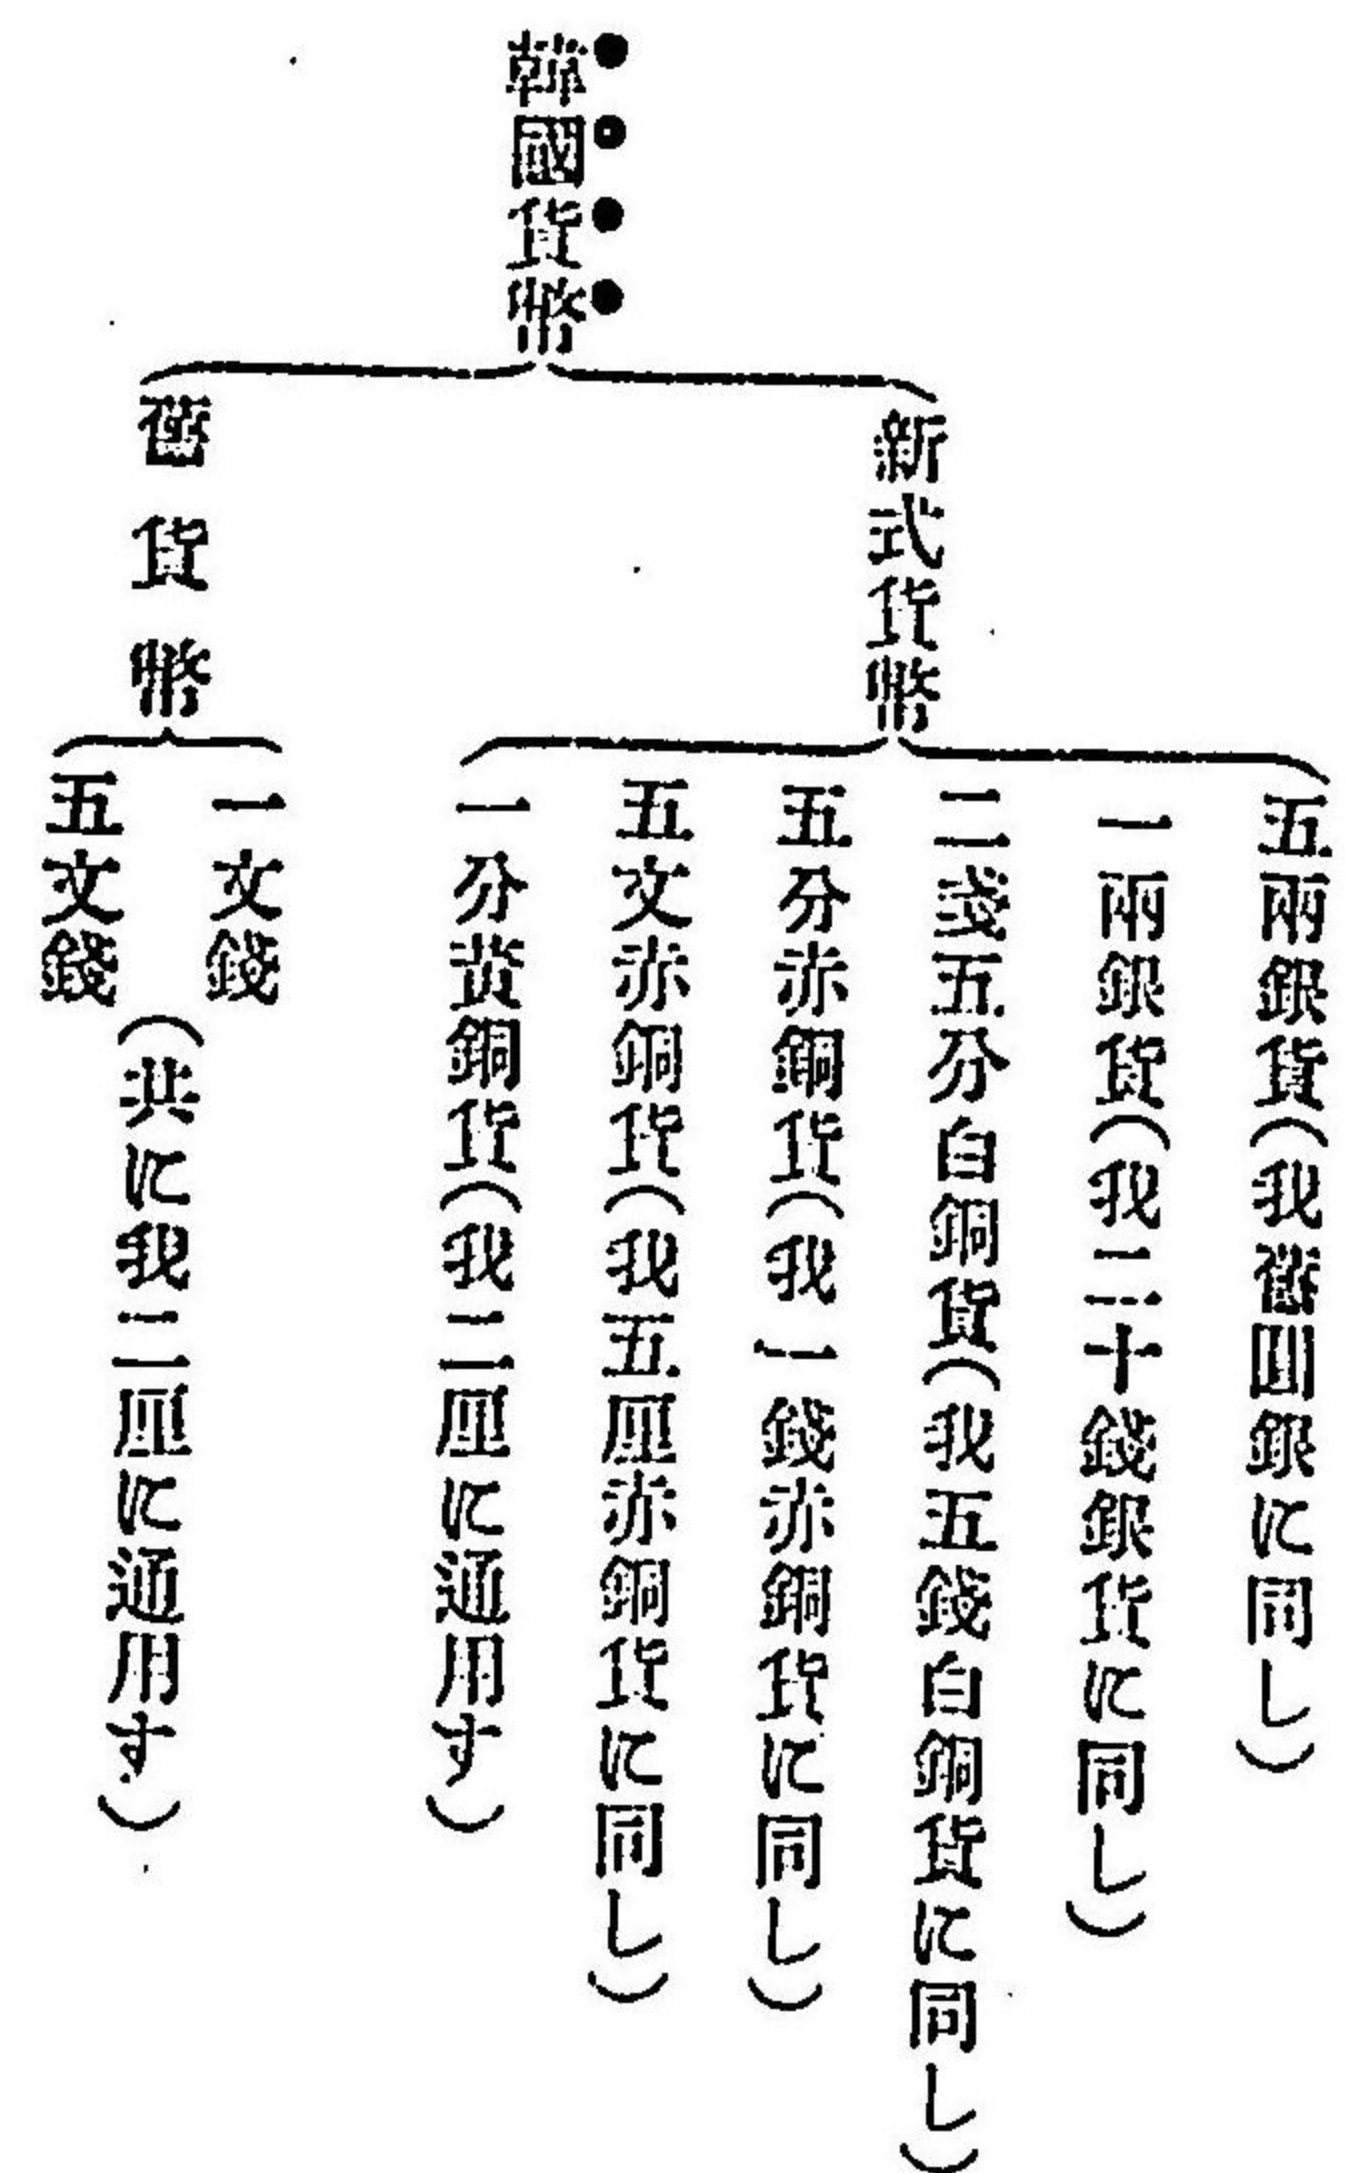 韓國貨幣
新式貨幣
五兩銀貨(我舊圓銀に同し)
一兩銀貨(我二十錢銀貨に同し)
二戔五分白銅貨(我五錢白銅貨に同し)
五分赤銅貨(我一錢赤銅貨に同し)
五文赤銅貨(我五厘赤銅貨に同し)
一分黄銅貨(我二厘に通用す)
舊貨幣
一文錢
五文錢
(共に我二厘に通用す)